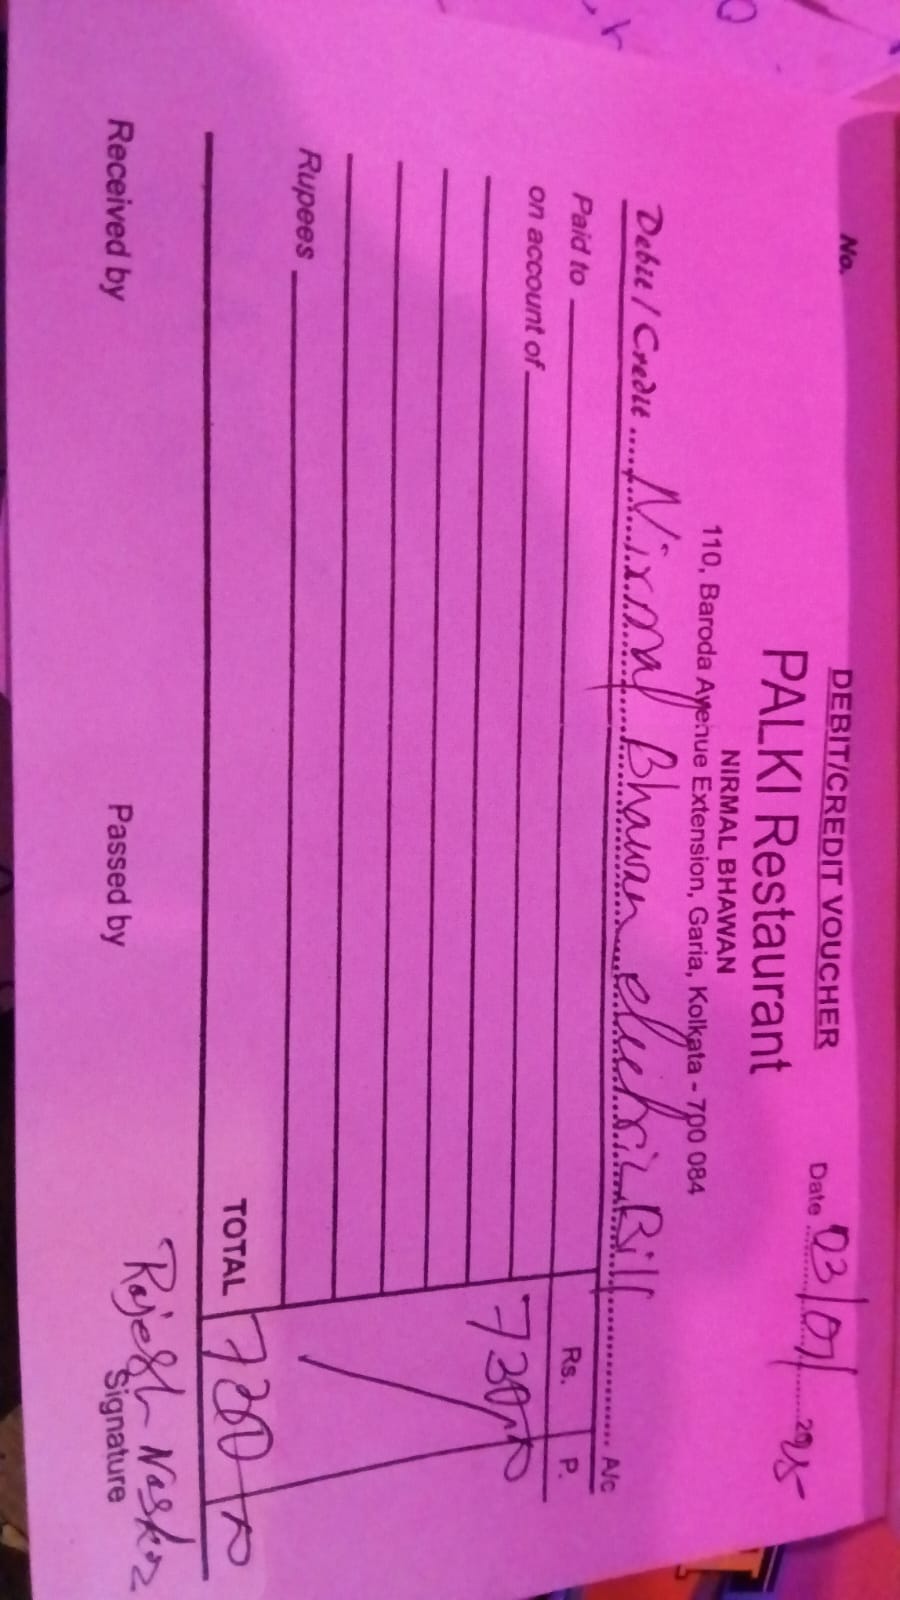 No.
DEBIT/CREDIT VOUCHER
PALKI Restaurant
Date 03/07/2025
NIRMAL BHAWAN
110, Baroda Avenue Extension, Garia, Kolkata - 700 084
Debit / Credit Nirmal Bhawan electric Bill A/c
Paid to Rs. P.
on account of 7300
Rupees
TOTAL 7300
Received by Passed by Rajesh Naskar
Signature